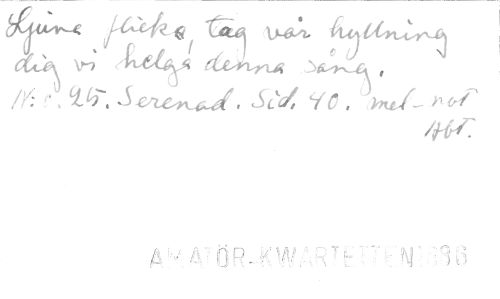 Ljuva flicka, tag vår hyllning
dig vi helga denna sång.
N:o. 25. Serenad. Sid. 40. mel-not
Abt.
AMATÖR-KWARTETTEN 1896